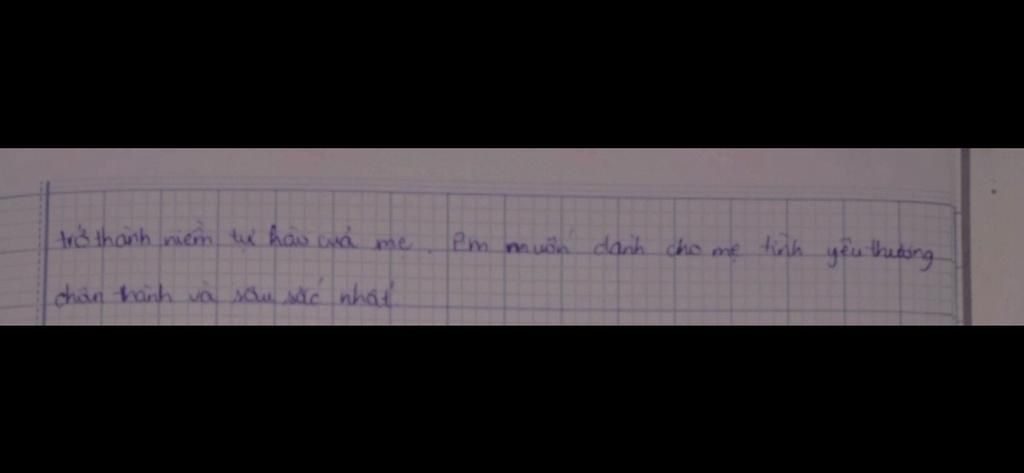 trở thành niềm tự hào của mẹ. Em muốn dành cho mẹ tình yêu thương
chân thành và sâu sắc nhất